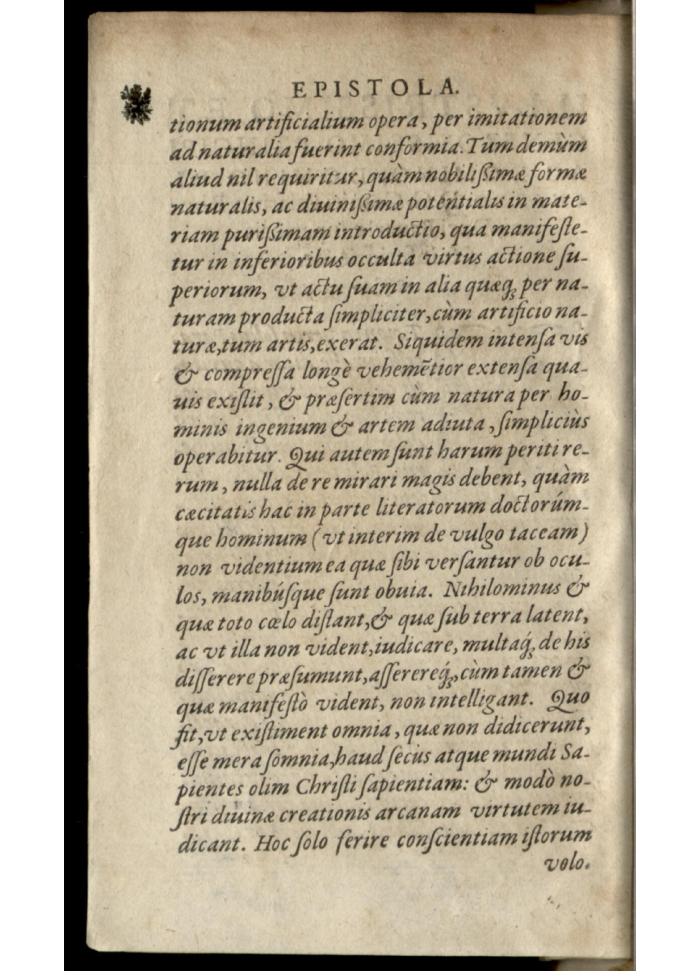 EPISTOLA.
tionum artificialium opera, per imitationem
ad naturalia fuerint conformia. Tum demùm
aliud nil requiritur, quàm nobilißimæ formæ
naturalis, ac diuinißimæ potentialis in mate-
riam purißimam introductio, qua manifeste-
tur in inferioribus occulta virtus actione su-
periorum, vt actu suam in alia quæq; per na-
turam producta simpliciter, cùm artificio na-
turæ, tum artis, exerat. Siquidem intensa vis
& compressa longè vehemẽtior extensa qua-
uis existit, & præsertim cùm natura per ho-
minis ingenium & artem adiuta, simpliciùs
operabitur. Qui autem sunt harum periti re-
rum, nulla de re mirari magis debent, quàm
cæcitatis hac in parte literatorum doctorúm-
que hominum (vt interim de vulgo taceam)
non videntium ea quæ sibi versantur ob ocu-
los, manibúsque sunt obuia. Nihilominus &
quæ toto cœlo distant, & quæ sub terra latent,
ac vt illa non vident, iudicare, multaq́; de his
disserere præsumunt, asserereq́;, cùm tamen &
quæ manifestò vident, non intelligant. Quo
fit, vt existiment omnia, quæ non didicerunt,
esse mera somnia, haud secus atque mundi Sa-
pientes olim Christi sapientiam: & modò no-
stri diuinæ creationis arcanam virtutem iu-
dicant. Hoc solo ferire conscientiam istorum
volo.